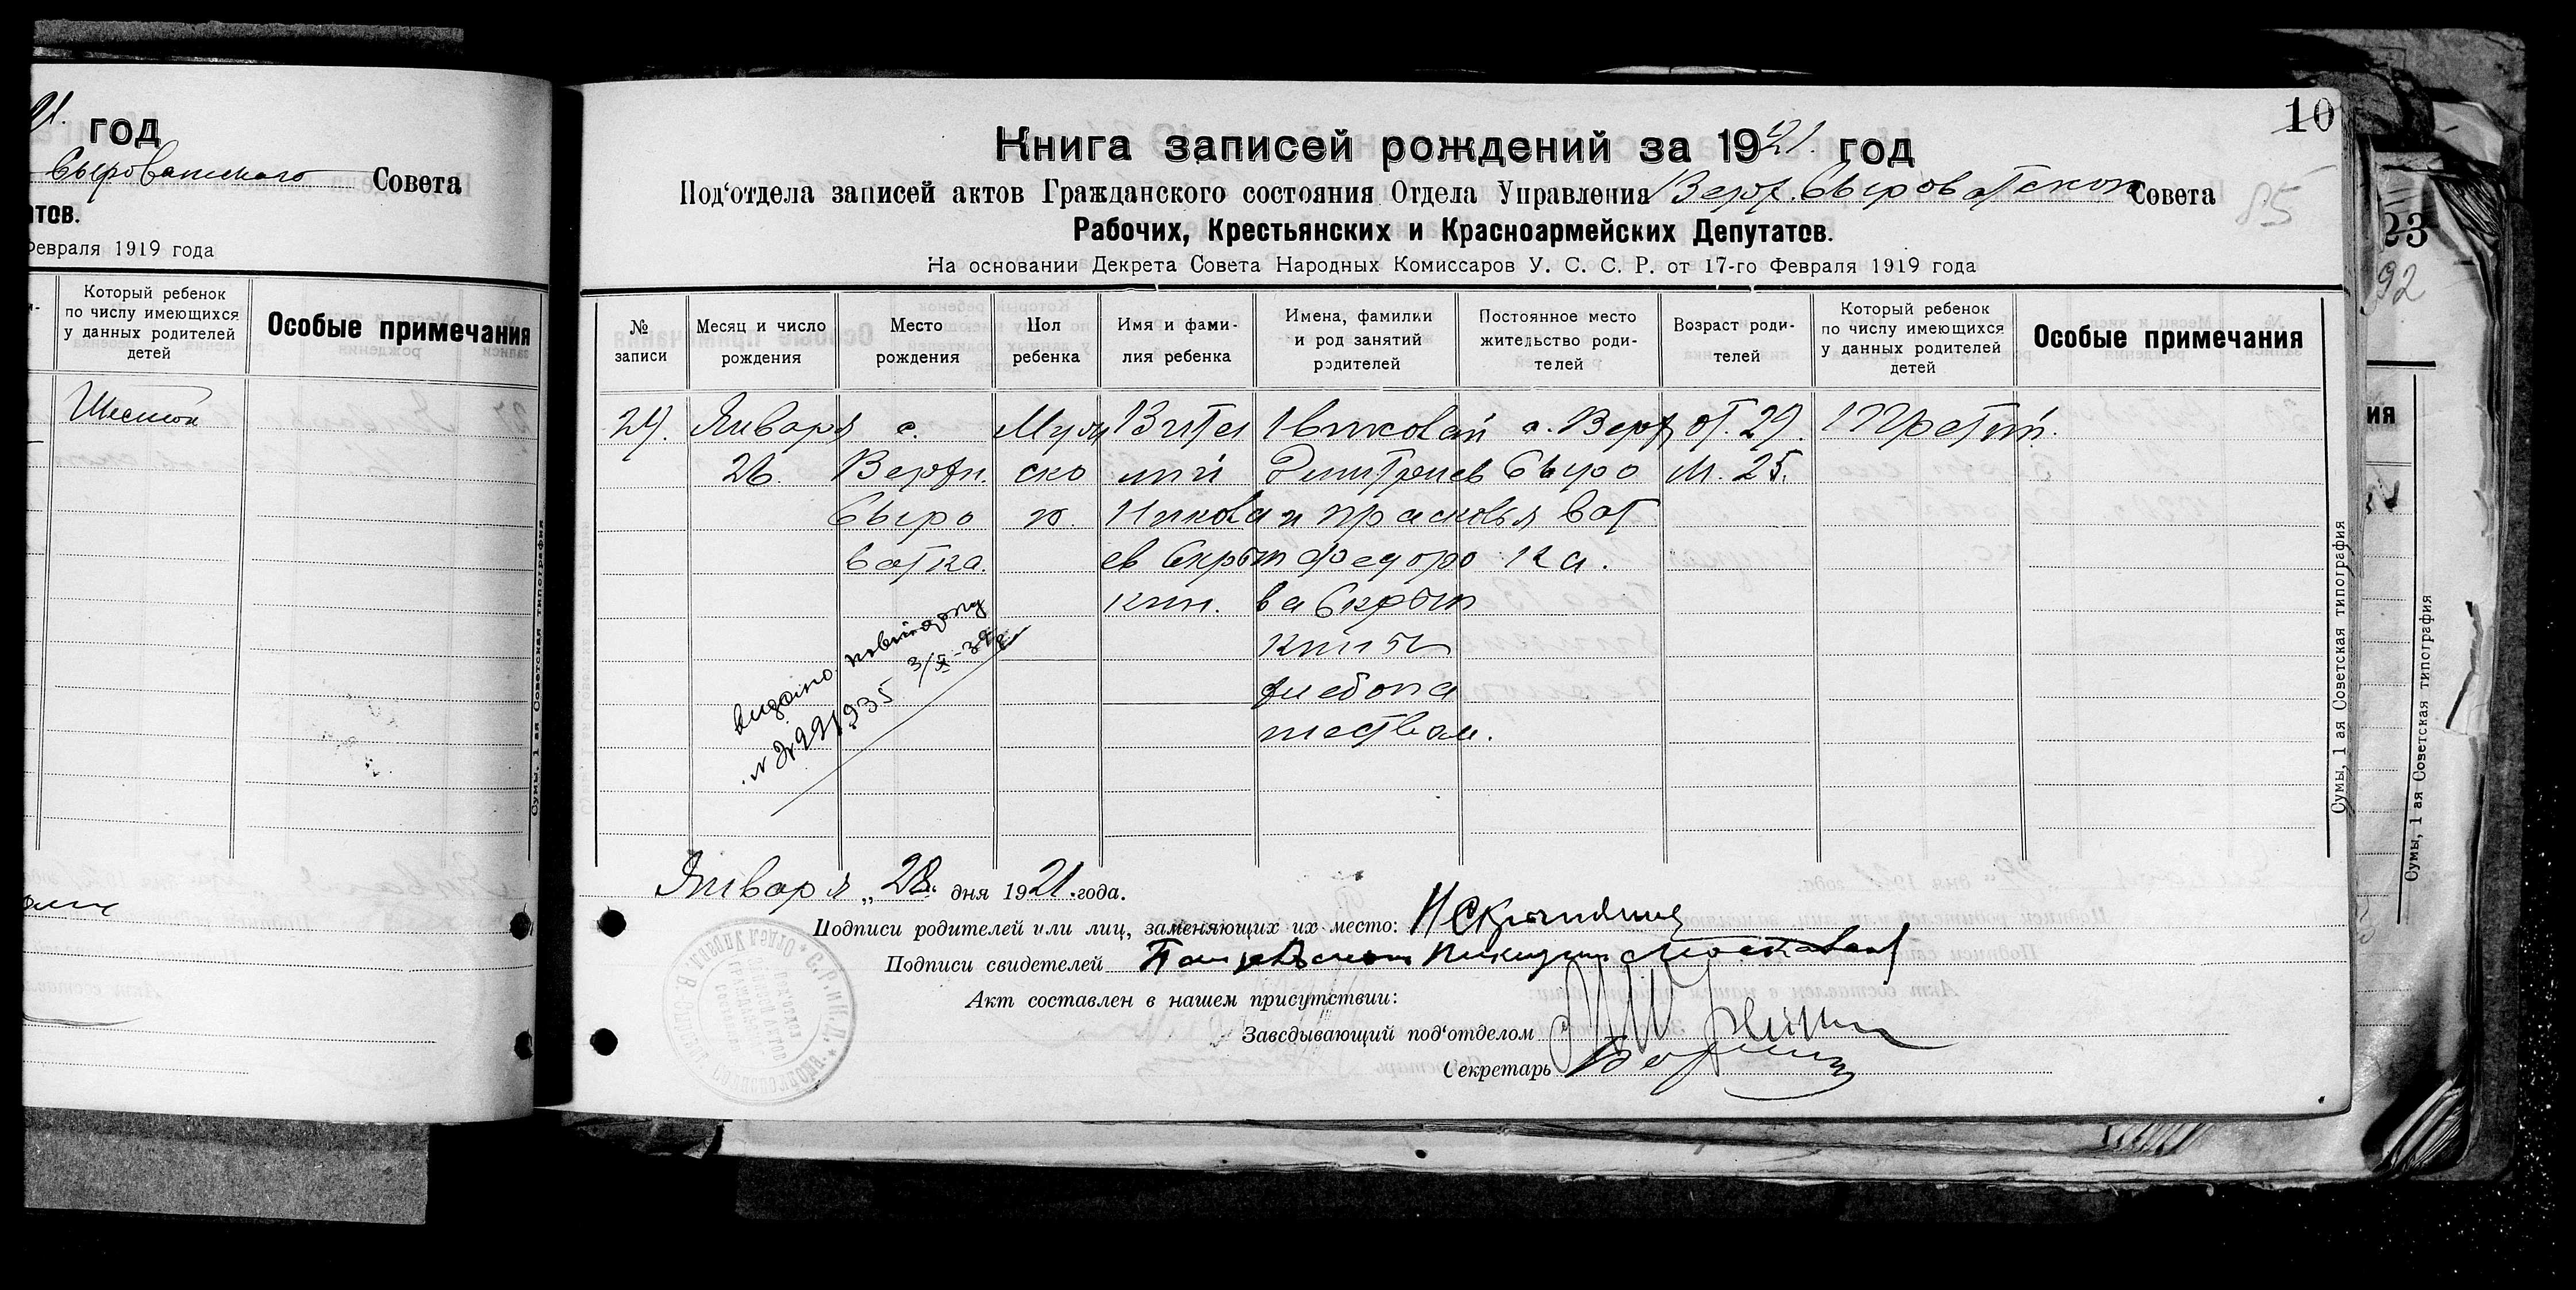 21. год
Сыроватского Совета
тов.
Февраля 1919 года
Который ребенок
по числу имеющихся
у данных родителей
детей
Особые примечания
Шестой
Сумы, 1 ая Советская типография
10
Книга записей рождений за 1921. год
Под'отдела записей актов Гражданского состояния Отдела Управления Верх. Сыроватском Совета
85
Рабочих, Крестьянских и Красноармейских Депутатов.
На основании Декрета Совета Народных Комиссаров У. С. С. Р. от 17-го Февраля 1919 года
№ записи
Месяц и число рождения
Место рождения
Пол ребенка
Имя и фамилия ребенка
Имена, фамилии и род занятий родителей
Постоянное место жительство родителей
Возраст родителей
Который ребенок по числу имеющихся у данных родителей детей
Особые примечания
Января с. Муж Вита Николай с. Верх от. 29. Третий.
26. Верхн. ско лий Дмитриев Сыро М. 25.
Сыро Никола и Прасковья ват
ватка. ев Скрып Федоро ка.
кин. ва Скрып
кины
хлебопа
шеством.
Января „28. дня 1921. года.
Подписи родителей или лиц, заменяющих их место:
Подписи свидетелей
Акт составлен в нашем присутствии:
Заведывающий под'отделом
Секретарь
Сумы, 1 ая Советская типография
23
92
ия
Сумы, 1 ая Советская типография